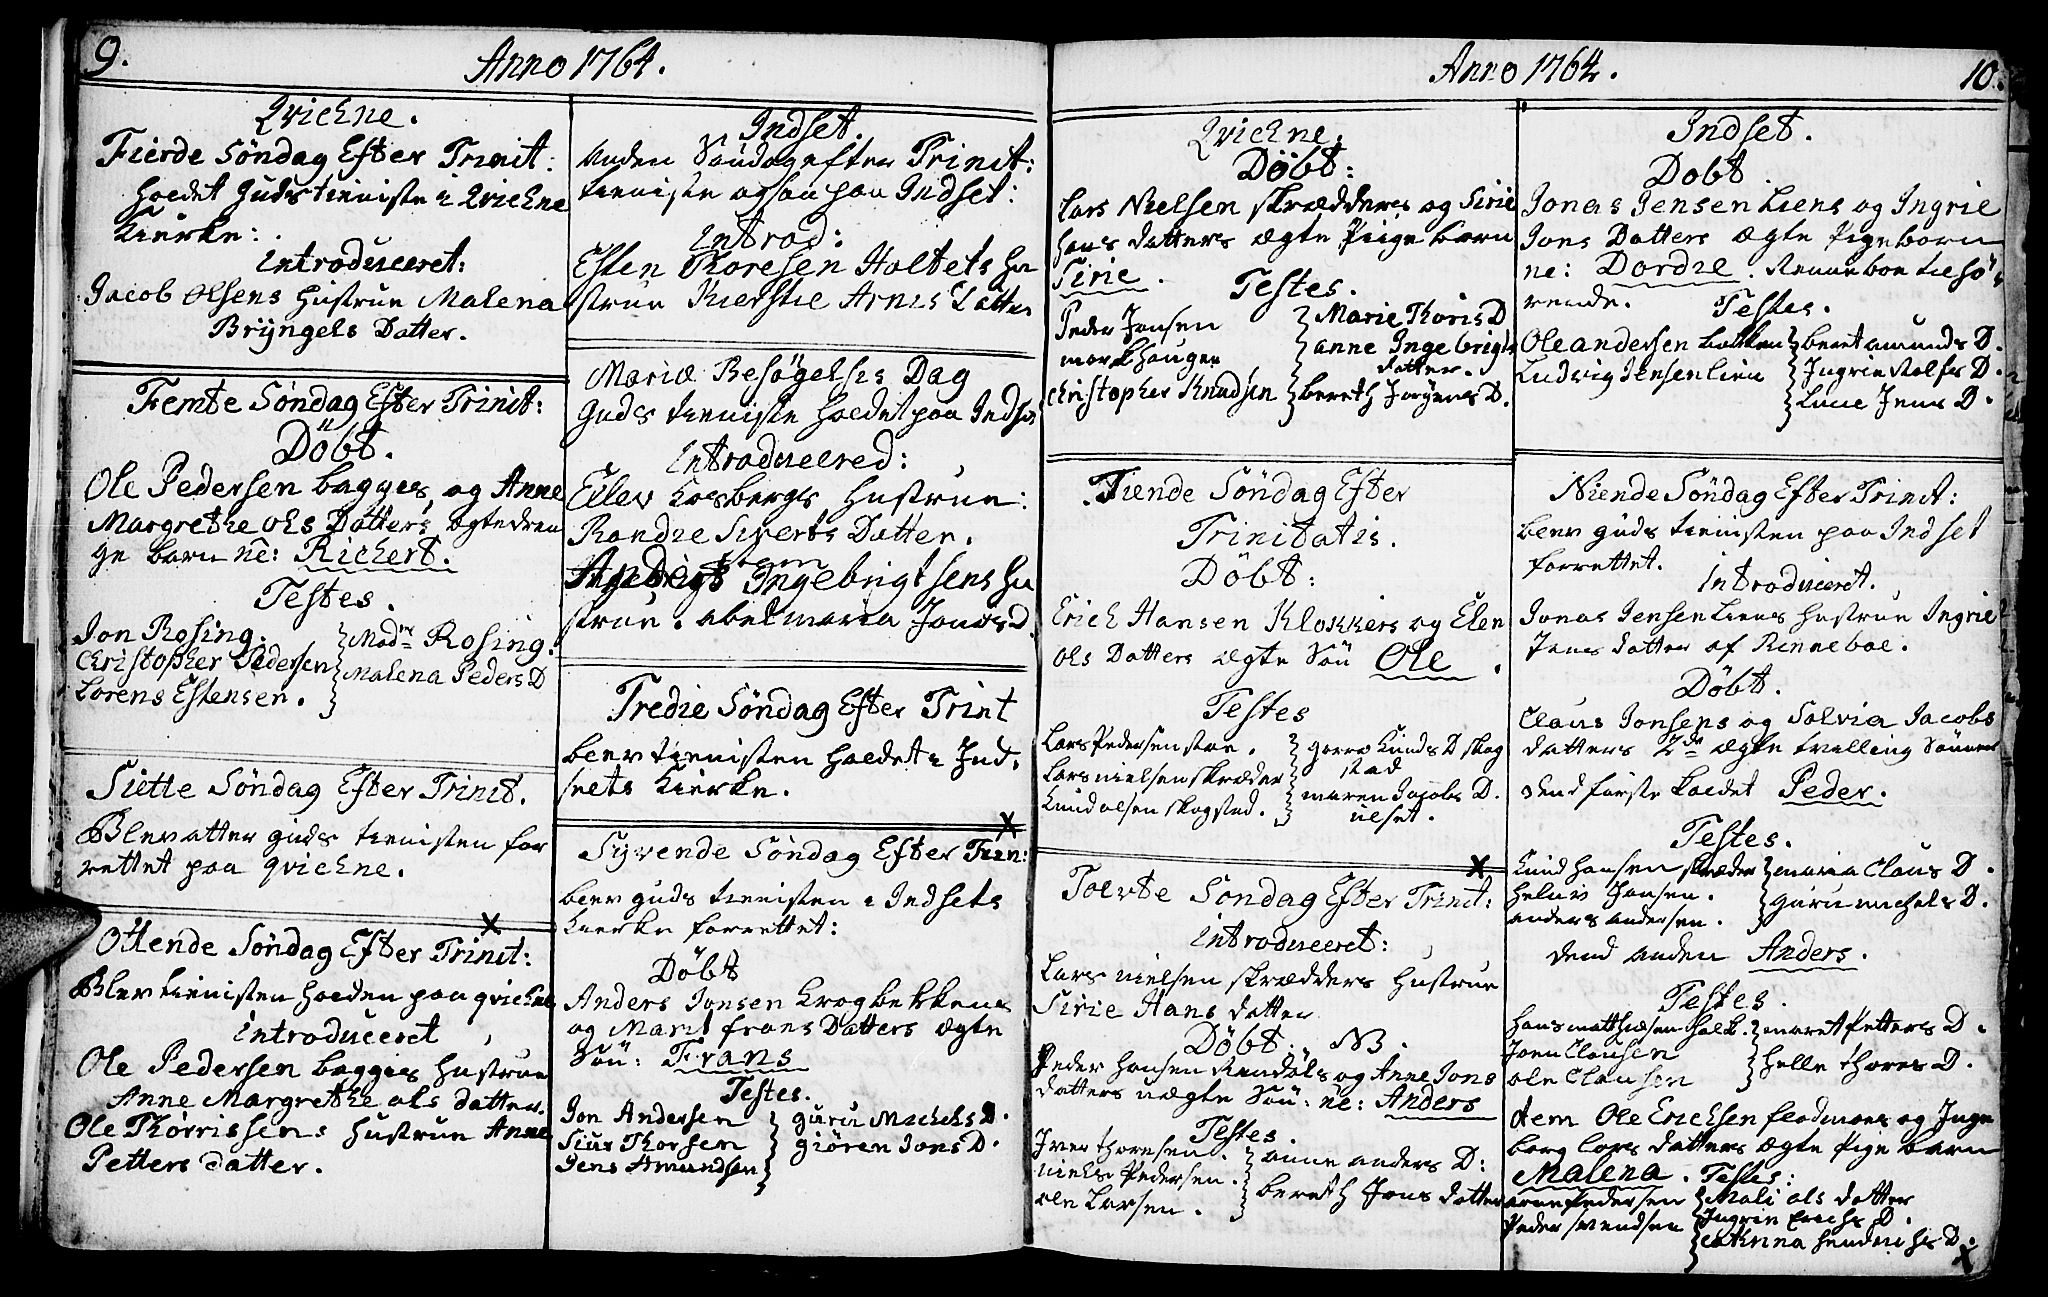 9.
Anno 1764.
Qviekne.
Fierde Söndag Efter Trinit:
holdet Guds tieniste i Qviekne
Kierke:
Introduceret:
Jacob Olsens Hustrue Malena
Bryngels Datter.
Femte Söndag Efter Trinit:
Döbt.
Ole Pedersen bagges og Anne
Margrethe ols Datters ægte dren
ge barn ne: Richert.
Testes.
Jon Rosing.
Christopher Pedersen
Lorens Estensen.
Madme Rosing.
Malena Peders D
Siette Söndag Efter Trinit.
Blev atter guds tienisten for
rettet paa qviekne.
Ottende Söndag Efter Trinit:
Blev tienisten holden paa qviekne
Introduceret
Ole Pedersen bagges Hustrue
Anne Margrethe ols datter.
Ole Thorrissens Hustrue Anne
Petters datter.
Indset.
Anden Söndag efter Trinit:
tieniste ogsaa paa Indset:
Introd:
Esten Thoresen Holtets Hu
strue Kierstie Arnes Datter
Mariæ Besögelses Dag
Guds tieniste holdet paa Indset
Introduceered:
Ellev Kosbergs Hustrue:
Randie Siverts Datter.
Ingebrigtsens Hu
strue. abel maria Jonas D.
Tredie Söndag Efter Trint
blev tienisten holdet i Ind,
sets Kierke.
X
Syvende Söndag Efter Trin:
blev guds tienisten i Indsets
Kierke forrettet:
Döbt
Anders Jonsen Krogbekkens
og Marit frans Datters ægte
Sön: Frans
Testes.
Jon Andersen
Siur Thorsen
Jens Amundsen
guru Michels D.
giören Jons D.
X
Anno 1764.
10.
Qviekne.
Döbt:
Lars Nielsen skrædders og Sirie
Hans datters ægte Piige barn
Sirie.
Testes.
Peder Jonsen
morkhaugen
Christopher Knudsen
Marie Thoris D
anne Ingebrigts
datter.
bereth Jörgens D.
Tiende Söndag Efter
Trinitatis.
Döbt:
Erich Hansen Klokkers og Elen
ols Datters ægte Sön Ole.
Testes
Lars Pedersen stoe.
Lars nielsen skræder
Knud olsen skogstad.
gorro Knuds D skog
stad
maren Jacobs D.
ulset.
X
Tolvte Söndag Efter Trinit:
Introduceret:
Lars nielsen skrædders Hustrue
Sirie Hans datter
Döbt. NB.
Peder Hansen og Anne Jons
datters uægte Sön: ne: Anders
Testes.
Iver thoresen.
niels Pedersen.
ole Larsen.
anne anders D:
bereth Jons datter
Indset.
Döbt.
Jonas Jensen Liens og Ingrie
Jons Datters ægte Pigebarn
ne: Dordie. Renneboe til hö,
rende.
Testes.
Ole andersen bakken
Ludvig Jensen lien
beret amunds D.
Ingrie Rolfs D.
Lucie Jens D.
Niende Söndag Efter Trinit:
blev guds tienisten paa Indset
forrettet.
Introduceret.
Jonas Jensen Liens Hustrue Ingrie
Jens datter af Renneboe.
Döbt.
Claus Jonsens og Solvia Jacobs
datters 2de ægte tvelling Sönner
dend förste kaldet Peder.
Testes.
Knud Hansen skræder
Helvis Jonsen.
anders andersen.
maria Claus D.
guru michels D.
dend anden Anders.
Testes.
Hans matthiesen
Joen Clausen
ole Clausen
maret Petters D.
Helle thores D.
item Ole Erichsen flodmoes og Inge
borg Lars datters ægte Pige barn
Malena. Testes:
arne Pedersen
Peder svendsen
Mali ols datter
Ingrie Erichs D.
Cathrina Hendrichs D.
X